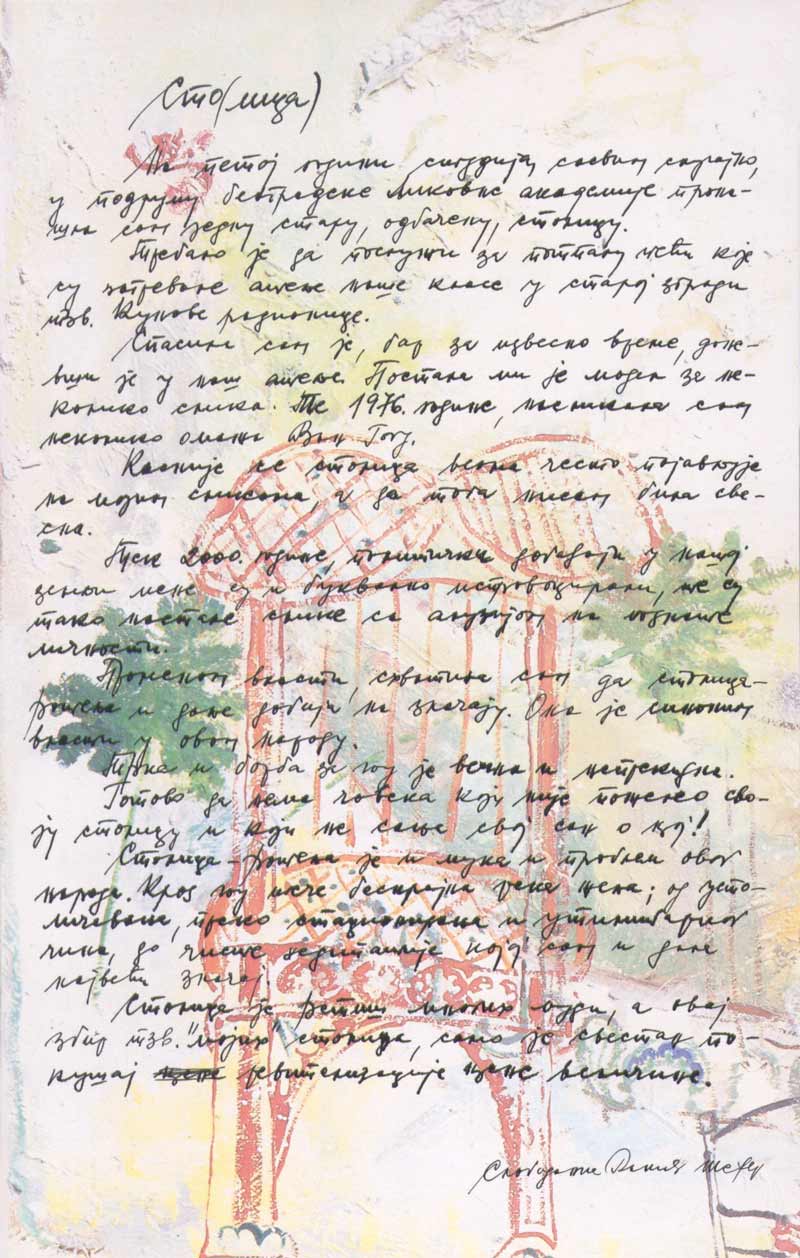 Сто(лица)
На петој години студија, сасвим случајно,
у подруму београдске ликовне академије прона-
шла сам једну стару, одбачену, столицу.
Требало је да послужи за потпалу пећи које
су загревале атеље наше класе у старој згради
тзв. Кунове радионице.
Спасила сам је, бар за извесно време, донев-
ши је у наш атеље. Постала ми је модел за не-
колико слика. Те 1976. године, насликала сам
неколико омажа Ван Гогу.
Касније се столица веома често појављује
на мојим сликама, а да тога нисам била све-
сна.
Тек 2000. године, политички догађаји у нашој
земљи мене су и буквално испровоцирали, те су
тако настале слике са алузијом на
личности.
Променом власти, схватила сам да столица-
фотеља и даље добија на значају. Она је синоним
власти у овом народу.
Трка и борба за њу је вечна и непрекидна.
Готово да нема човека који није пожелео сво-
ју столицу и који не сања свој сан о њој!
Столица-фотеља је и мука и проблем овог
народа. Кроз њу тече бескрајна река жеља; од усто-
личавања, преко и утилитарног
чина, до чисте медитације којој сам и дала
највећи значај.
Столица је фетиш многих људи, а овај
збир тзв. "мојих" столица, само је свестан по-
кушај ревитализације њене величине.